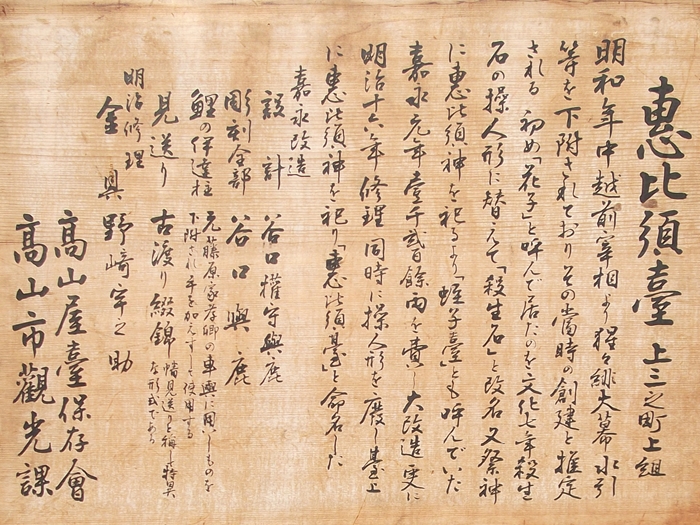 惠比須臺 上三之町上組
明和年中越前宰相より猩々緋大幕水引
等を下附されておりその當時の創建と推定
される 初め「花子」と呼んで居たのを文化七年殺生
石の操人形に替えて「殺生石」と改名又祭神
に惠比須神を祀るより「蛭子臺」とも呼んでいた
嘉永元年壹千貳百餘両を費し大改造更に
明治十六年修理同時に操人形を廢し臺上
に惠比須神を祀り「惠比須臺」と命名した
嘉永改造
設計 谷口權守與鹿
彫刻全部 谷口與鹿
鯉の伊達柱 元藤原家孝卿の車輿に用いしものを
下附され手を加えずして使用する
見送り 古渡り綴錦 幡見送りと稱し特異
な形式である
明治修理
金具 野﨑宇之助
高山屋臺保存會
高山市觀光課